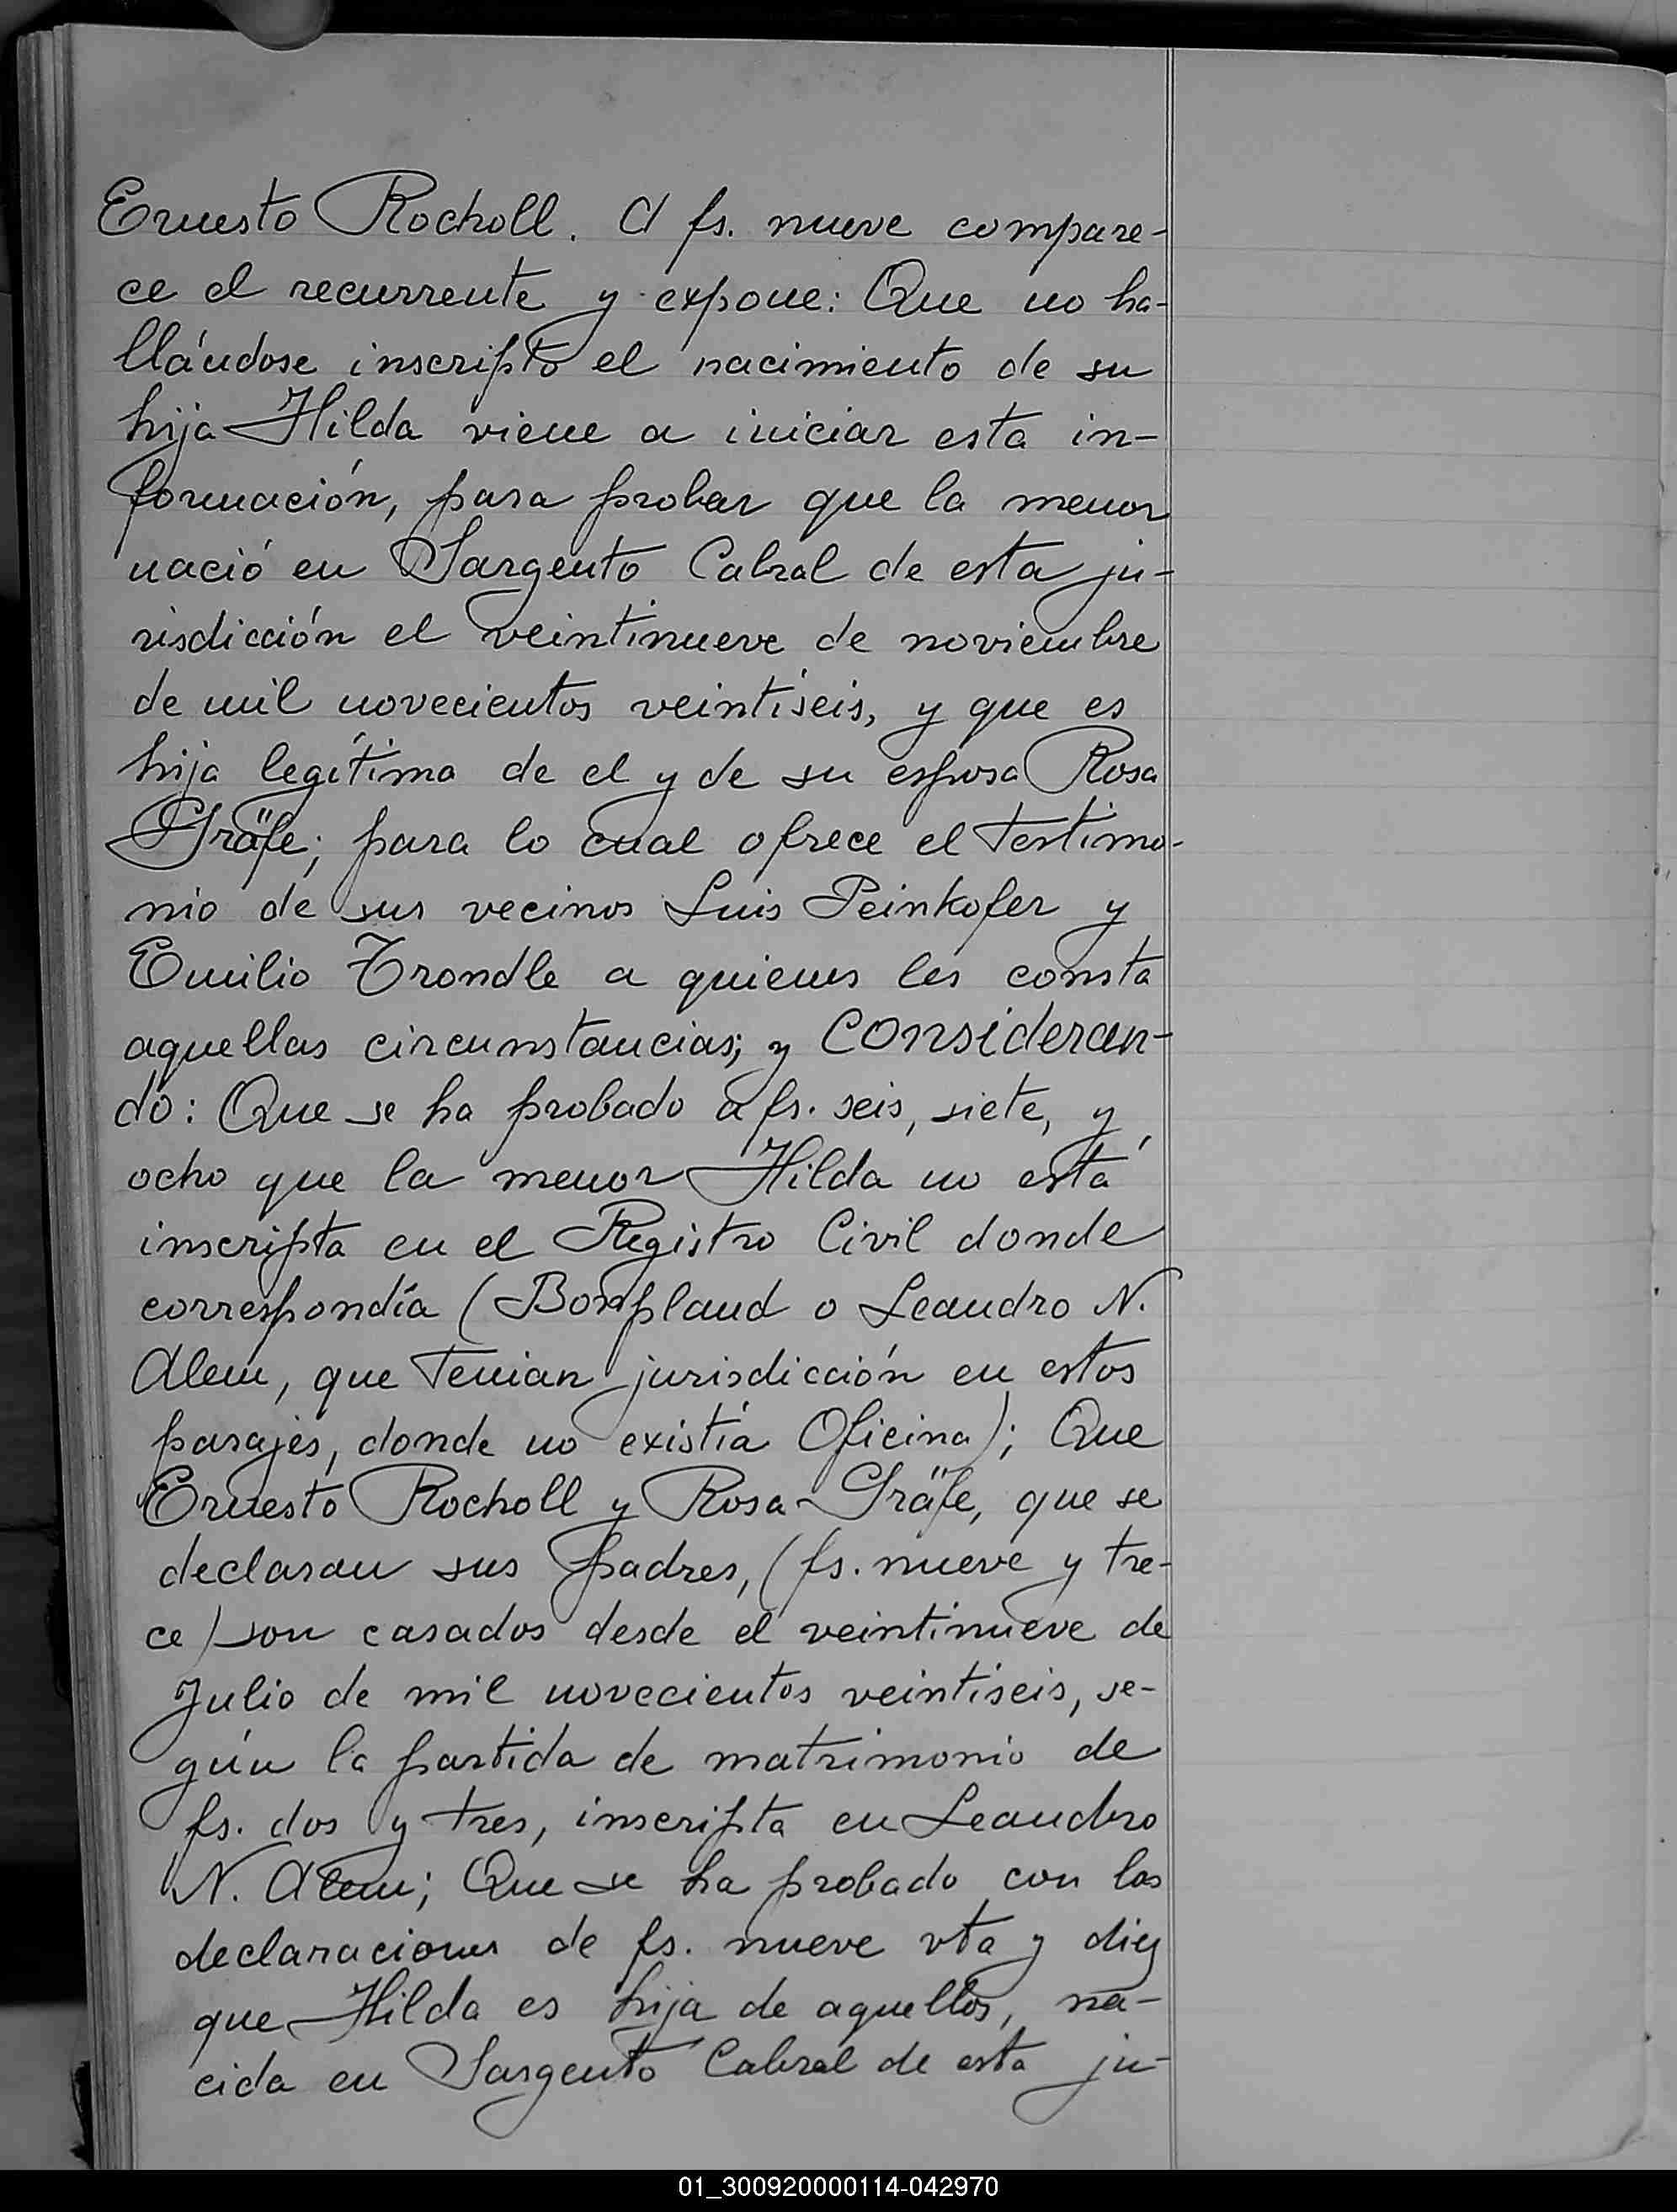 Ernesto Rocholl. A fs. nueve compare-
ce el recurrente y expone: Que no ha-
llándose inscripto el nacimiento de su
hija Hilda viene a iniciar esta in-
formación, para probar que la menor
nació en Sargento Cabral de esta ju-
risdicción el veintinueve de noviembre
de mil novecientos veintiseis, y que es
hija legítima de el y de su esposa Rosa
Gräfe; para lo cual ofrece el testimo-
nio de sus vecinos Luis Peinkofer y
Emilio Trondle a quienes les consta
aquellas circunstancias; y Consideran-
do: Que se ha probado a fs. seis, siete, y
ocho que la menor Hilda no está
inscripta en el Registro Civil donde
correspondía (Bonpland o Leandro N.
Alem, que tenian jurisdicción en estos
parajes, donde no existía Oficina); Que
Ernesto Rocholl y Rosa Gräfe, que se
declaran sus padres, (fs. nueve y tre-
ce) son casados desde el veintinueve de
Julio de mil novecientos veintiseis, se-
gún la partida de matrimonio de
fs. dos y tres, inscripta en Leandro
N. Alem; Que se ha probado con las
declaraciones de fs. nueve vta y diez
que Hilda es hija de aquellos, na-
cida en Sargento Cabral de esta ju-
01_300920000114-042970